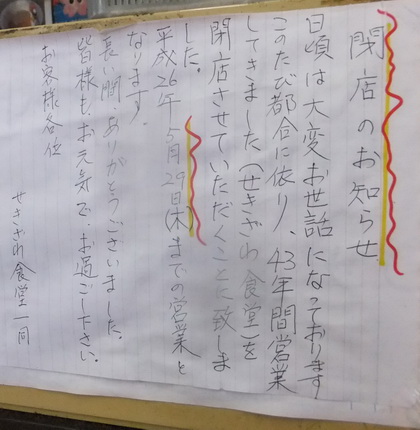 閉店のお知らせ
日頃は大変お世話になっております
このたび都合に依り、43年間営業
してきました(せきざわ食堂)を
閉店させていただくことに致しま
した。
平成26年5月29日(木)までの営業と
なります。
長い間、ありがとうございました。
皆様も、お元気で、お過ごし下さい。
お客様各位
せきざわ食堂一同